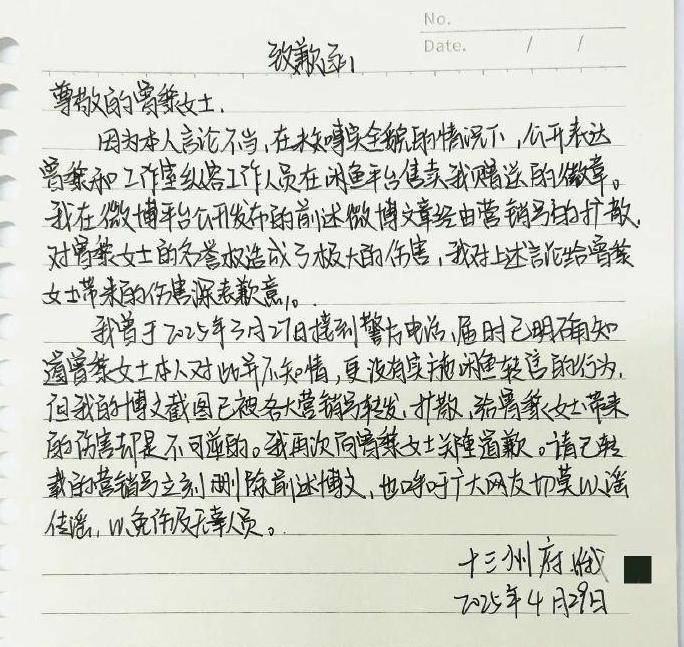 No.
Date. / /
致歉函
尊敬的曾黎女士,
因为本人言论不当,在未知事实全貌的情况下,公开表达
曾黎和工作室纵容工作人员在闲鱼平台售卖我赠送的徽章。
我在微博平台公开发布的前述微博文章经由营销号的扩散,
对曾黎女士的名誉权造成了极大的伤害,我对上述言论给曾黎
女士带来的伤害深表歉意。
我曾于2025年3月27日接到警方电话,届时已明确知
道曾黎女士本人对此并不知情,更没有实施闲鱼转售的行为,
但我的博文截图已被各大营销号转发、扩散,给曾黎女士带来
的伤害却是不可逆的。我再次向曾黎女士关键道歉。请已转
载的营销号立刻删除前述博文,也呼吁广大网友切莫以谣
传谣,以免伤及无辜人员。
十三州府
2025年4月29日